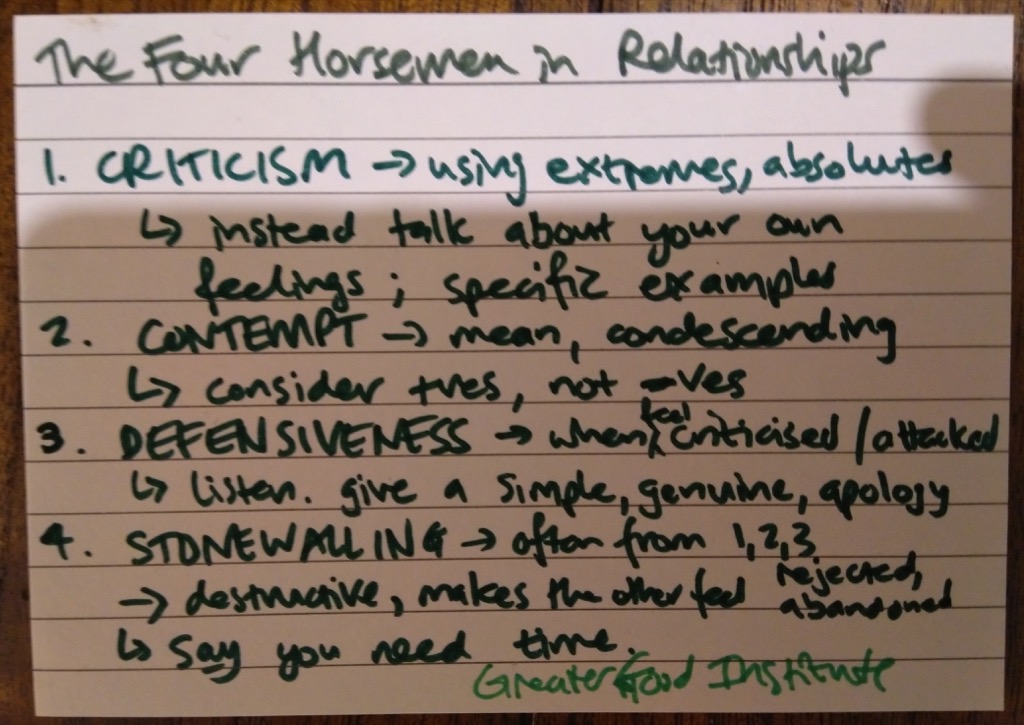 The Four Horsemen in Relationships
1. CRITICISM → using extremes, absolutes
↳ instead talk about your own
feelings; specific examples
2. CONTEMPT → mean, condescending
↳ consider +ves, not -ves
3. DEFENSIVENESS → when feel criticised / attacked
↳ listen. give a simple, genuine, apology
4. STONEWALLING → often from 1,2,3
→ destructive, makes the other feel rejected, abandoned
↳ say you need time.
Greater Good Institute